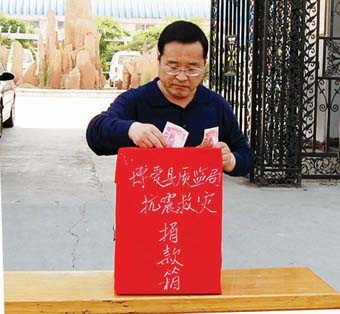 博爱县质监局
抗震救灾
捐
款
箱